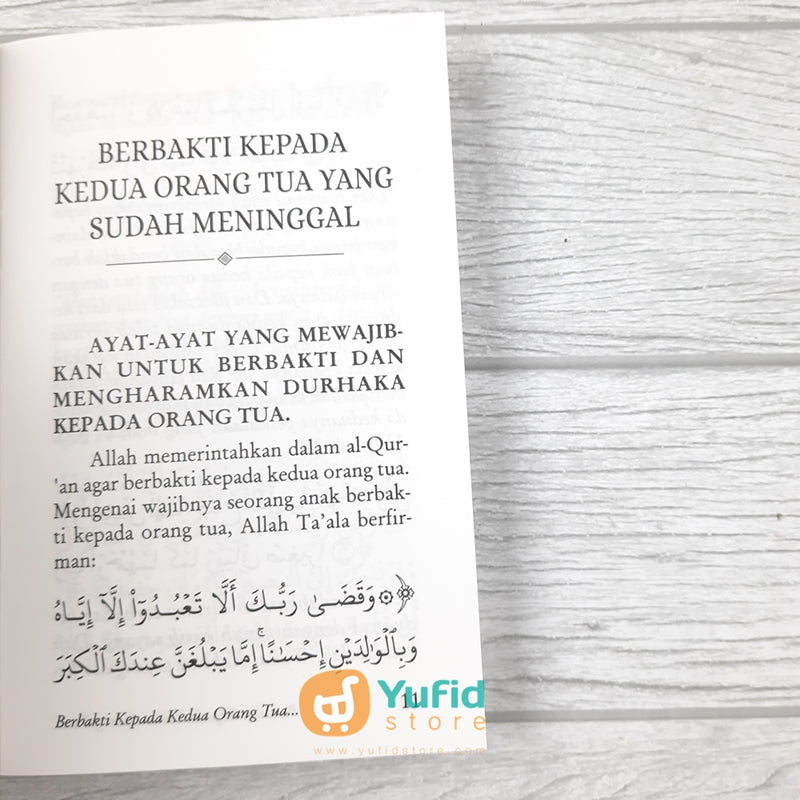 BERBAKTI KEPADA
KEDUA ORANG TUA YANG
SUDAH MENINGGAL
AYAT-AYAT YANG MEWAJIB-
KAN UNTUK BERBAKTI DAN
MENGHARAMKAN DURHAKA
KEPADA ORANG TUA.
Allah memerintahkan dalam al-Qur-
'an agar berbakti kepada kedua orang tua.
Mengenai wajibnya seorang anak berbak-
ti kepada orang tua, Allah Ta’ala berfir-
man:
﴿۞ وَقَضَىٰ رَبُّكَ أَلَّا تَعۡبُدُوٓاْ إِلَّآ إِيَّاهُ
وَبِٱلۡوَٰلِدَيۡنِ إِحۡسَٰنًاۚ إِمَّا يَبۡلُغَنَّ عِندَكَ ٱلۡكِبَرَ
Berbakti Kepada Kedua Orang Tua... 11
Yufid
store
www.yufidstore.com